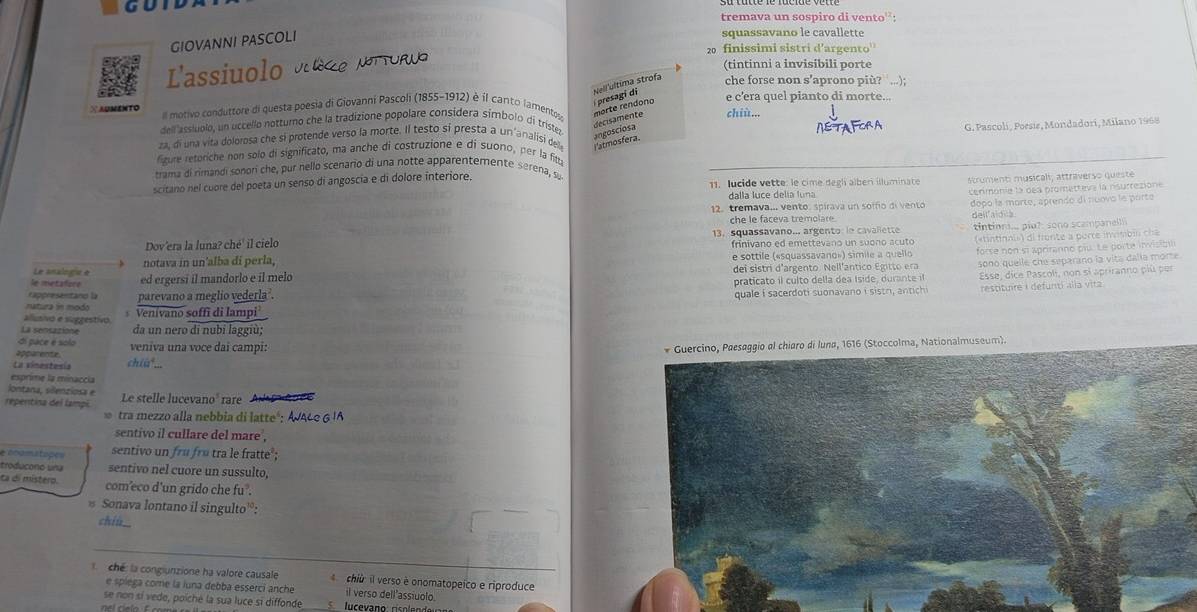 GUIDATA
GIOVANNI PASCOLI
L'assiuolo UCCELLO NOTTURNO
AUMENTO
Il motivo conduttore di questa poesia di Giovanni Pascoli (1855-1912) è il canto lamentoso
dell'assiuolo, un uccello notturno che la tradizione popolare considera simbolo di tristez
za, di una vita dolorosa che si protende verso la morte. Il testo si presta a un'analisi delle
figure retoriche non solo di significato, ma anche di costruzione e di suono, per la fitta
trama di rimandi sonori che, pur nello scenario di una notte apparentemente serena, su
scitano nel cuore del poeta un senso di angoscia e di dolore interiore.
Dov'era la luna? ché¹ il cielo
notava in un'alba di perla,
ed ergersi il mandorlo e il melo
parevano a meglio vederla².
5 Venivano soffi di lampi³
da un nero di nubi laggiù;
veniva una voce dai campi:
chiù⁴...
Le analogie e
le metafore
rappresentano la
natura in modo
allusivo e suggestivo.
La sensazione
di pace è solo
apparente.
La sinestesia
esprime la minaccia
lontana, silenziosa e
repentina dei lampi.
Le stelle lucevano⁵ rare
10 tra mezzo alla nebbia di latte⁶: ANALOGIA
sentivo il cullare del mare⁷,
sentivo un fru fru tra le fratte⁸;
sentivo nel cuore un sussulto,
com'eco d'un grido che fu⁹.
15 Sonava lontano il singulto¹⁰:
chiù...
e onomatopee
troducono una
ta di mistero.
1. ché: la congiunzione ha valore causale
e spiega come la luna debba esserci anche
se non si vede, poiché la sua luce si diffonde
nel cielo.
4. chiù: il verso è onomatopeico e riproduce
il verso dell'assiuolo.
5. lucevano: risplendevano
Su tutte le lucide vette
tremava un sospiro di vento¹²:
squassavano le cavallette
20 finissimi sistri d'argento¹³
(tintinni a invisibili porte
che forse non s'aprono più?¹⁴...);
e c'era quel pianto di morte...
chiù...
METAFORA
Nell'ultima strofa
i presagi di
morte rendono
decisamente
angosciosa
l'atmosfera.
G. Pascoli, Poesie, Mondadori, Milano 1968
11. lucide vette: le cime degli alberi illuminate
dalla luce della luna.
12. tremava... vento: spirava un soffio di vento
che le faceva tremolare.
13. squassavano... argento: le cavallette
frinivano ed emettevano un suono acuto
e sottile («squassavano») simile a quello
dei sistri d'argento. Nell'antico Egitto era
praticato il culto della dea Iside, durante il
quale i sacerdoti suonavano i sistri, antichi
strumenti musicali; attraverso queste
cerimonie la dea prometteva la risurrezione
dopo la morte, aprendo di nuovo le porte
dell'aldilà.
tintinni... più?: sono scampanellii
(«tintinni») di fronte a porte invisibili che
forse non si apriranno più. Le porte invisibili
sono quelle che separano la vita dalla morte.
Esse, dice Pascoli, non si apriranno più per
restituire i defunti alla vita.
Guercino, Paesaggio al chiaro di luna, 1616 (Stoccolma, Nationalmuseum).